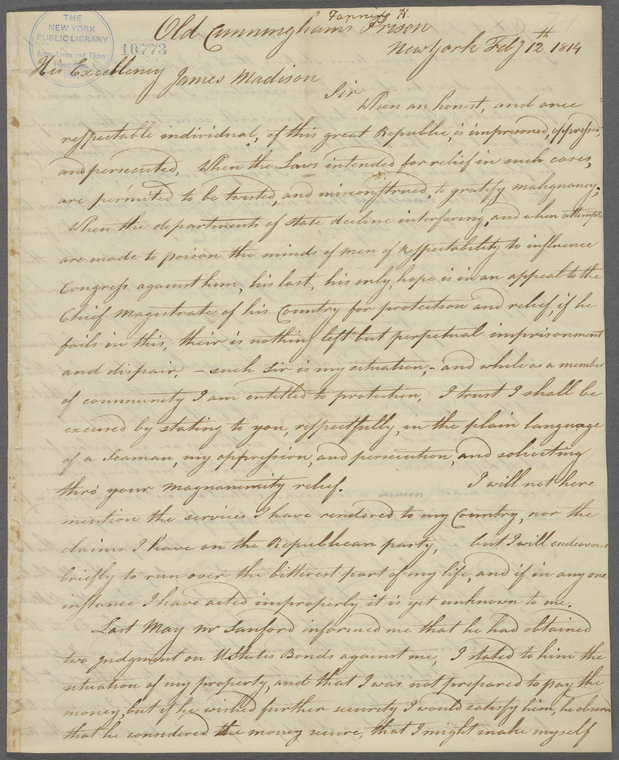 THE
NEW YORK
PUBLIC LIBRARY
Astor, Lenox and Tilden
10773
Fanning N.
Old Cunninghams Prison
New York Feby 12th 1814
His Excellency James Madison
Sir
When an honest, and once
respectable individual, of this great Republic, is imprisoned, oppress,
and persecuted, When the Laws intended for relief in such cases,
are permitted to be twisted, and misconstrued, to gratify malignancy,
When the departments of state decline interfering, and when attempts
are made to poison the minds of men of Respectability to influence
Congress against him, his last, his only, hope is in an appeal to the
Chief Magistrate of his Country for protection and relief, if he
fails in this, their is nothing left but perpetual imprisonment
and dispair, - such Sir is my situation, - and while as a member
of community I am entitled to protection, I trust I shall be
excused by stating to you, respectfully, in the plain language
of a Seaman, my oppression, and persecution, and soliciting
thro' your Magnanimity relief. I will not here
mention the services I have rendered to my Country, nor the
claims I have on the Republican party, but I will endeavour
briefly to run over the bitterest part of my life, and if in any one
instance I have acted improperly it is yet unknown to me.
Last May Mr Sanford informed me that he had obtained
two judgment on U States Bonds against me, I stated to him the
situation of my property, and that I was not prepared to pay the
money, but if he wished further security I would satisfy him, he observ
that he considered the money secure, that I might make myself